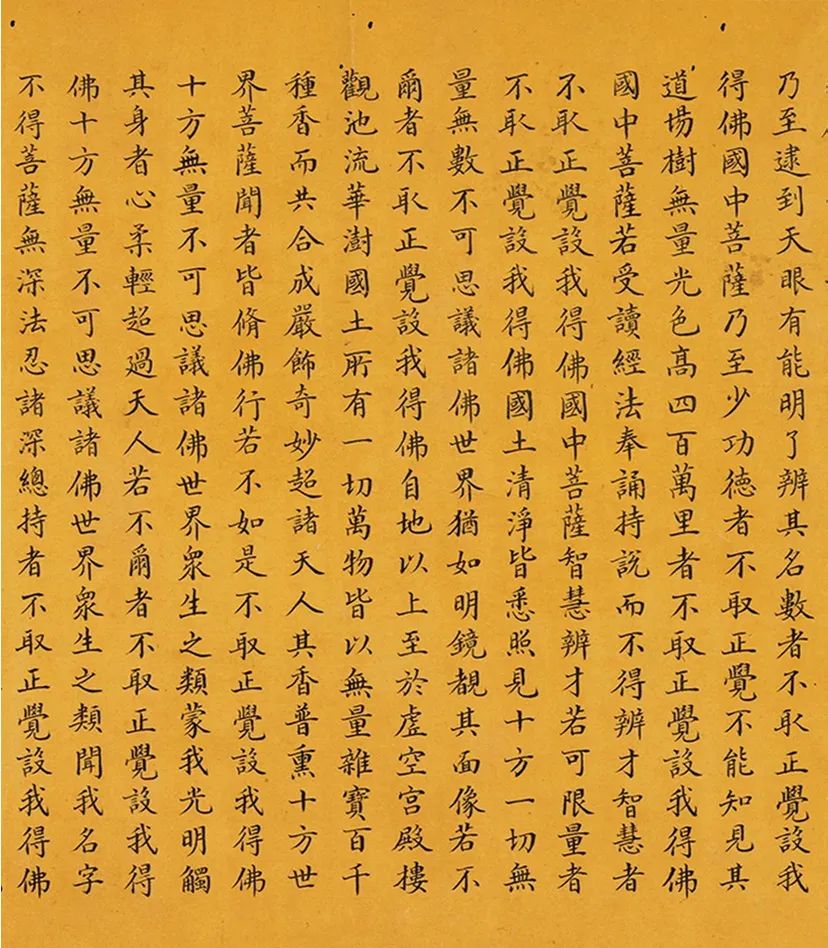 乃至逮到天眼有能明了辨其名數者不取正覺設我
得佛國中菩薩乃至少功德者不取正覺不能知見其
道場樹無量光色高四百萬里者不取正覺設我得佛
國中菩薩若受讀經法奉誦持說而不得辨才智慧者
不取正覺設我得佛國中菩薩智慧辨才若可限量者
不取正覺設我得佛國土清淨皆悉照見十方一切無
量無數不可思議諸佛世界猶如明鏡覩其面像若不
爾者不取正覺設我得佛自地以上至於虛空宮殿樓
觀池流華澍國土所有一切萬物皆以無量雜寶百千
種香而共合成嚴飾奇妙超諸天人其香普熏十方世
界菩薩聞者皆脩佛行若不如是不取正覺設我得佛
十方無量不可思議諸佛世界眾生之類蒙我光明觸
其身者心柔輕超過天人若不爾者不取正覺設我得
佛十方無量不可思議諸佛世界眾生之類聞我名字
不得菩薩無深法忍諸深總持者不取正覺設我得佛